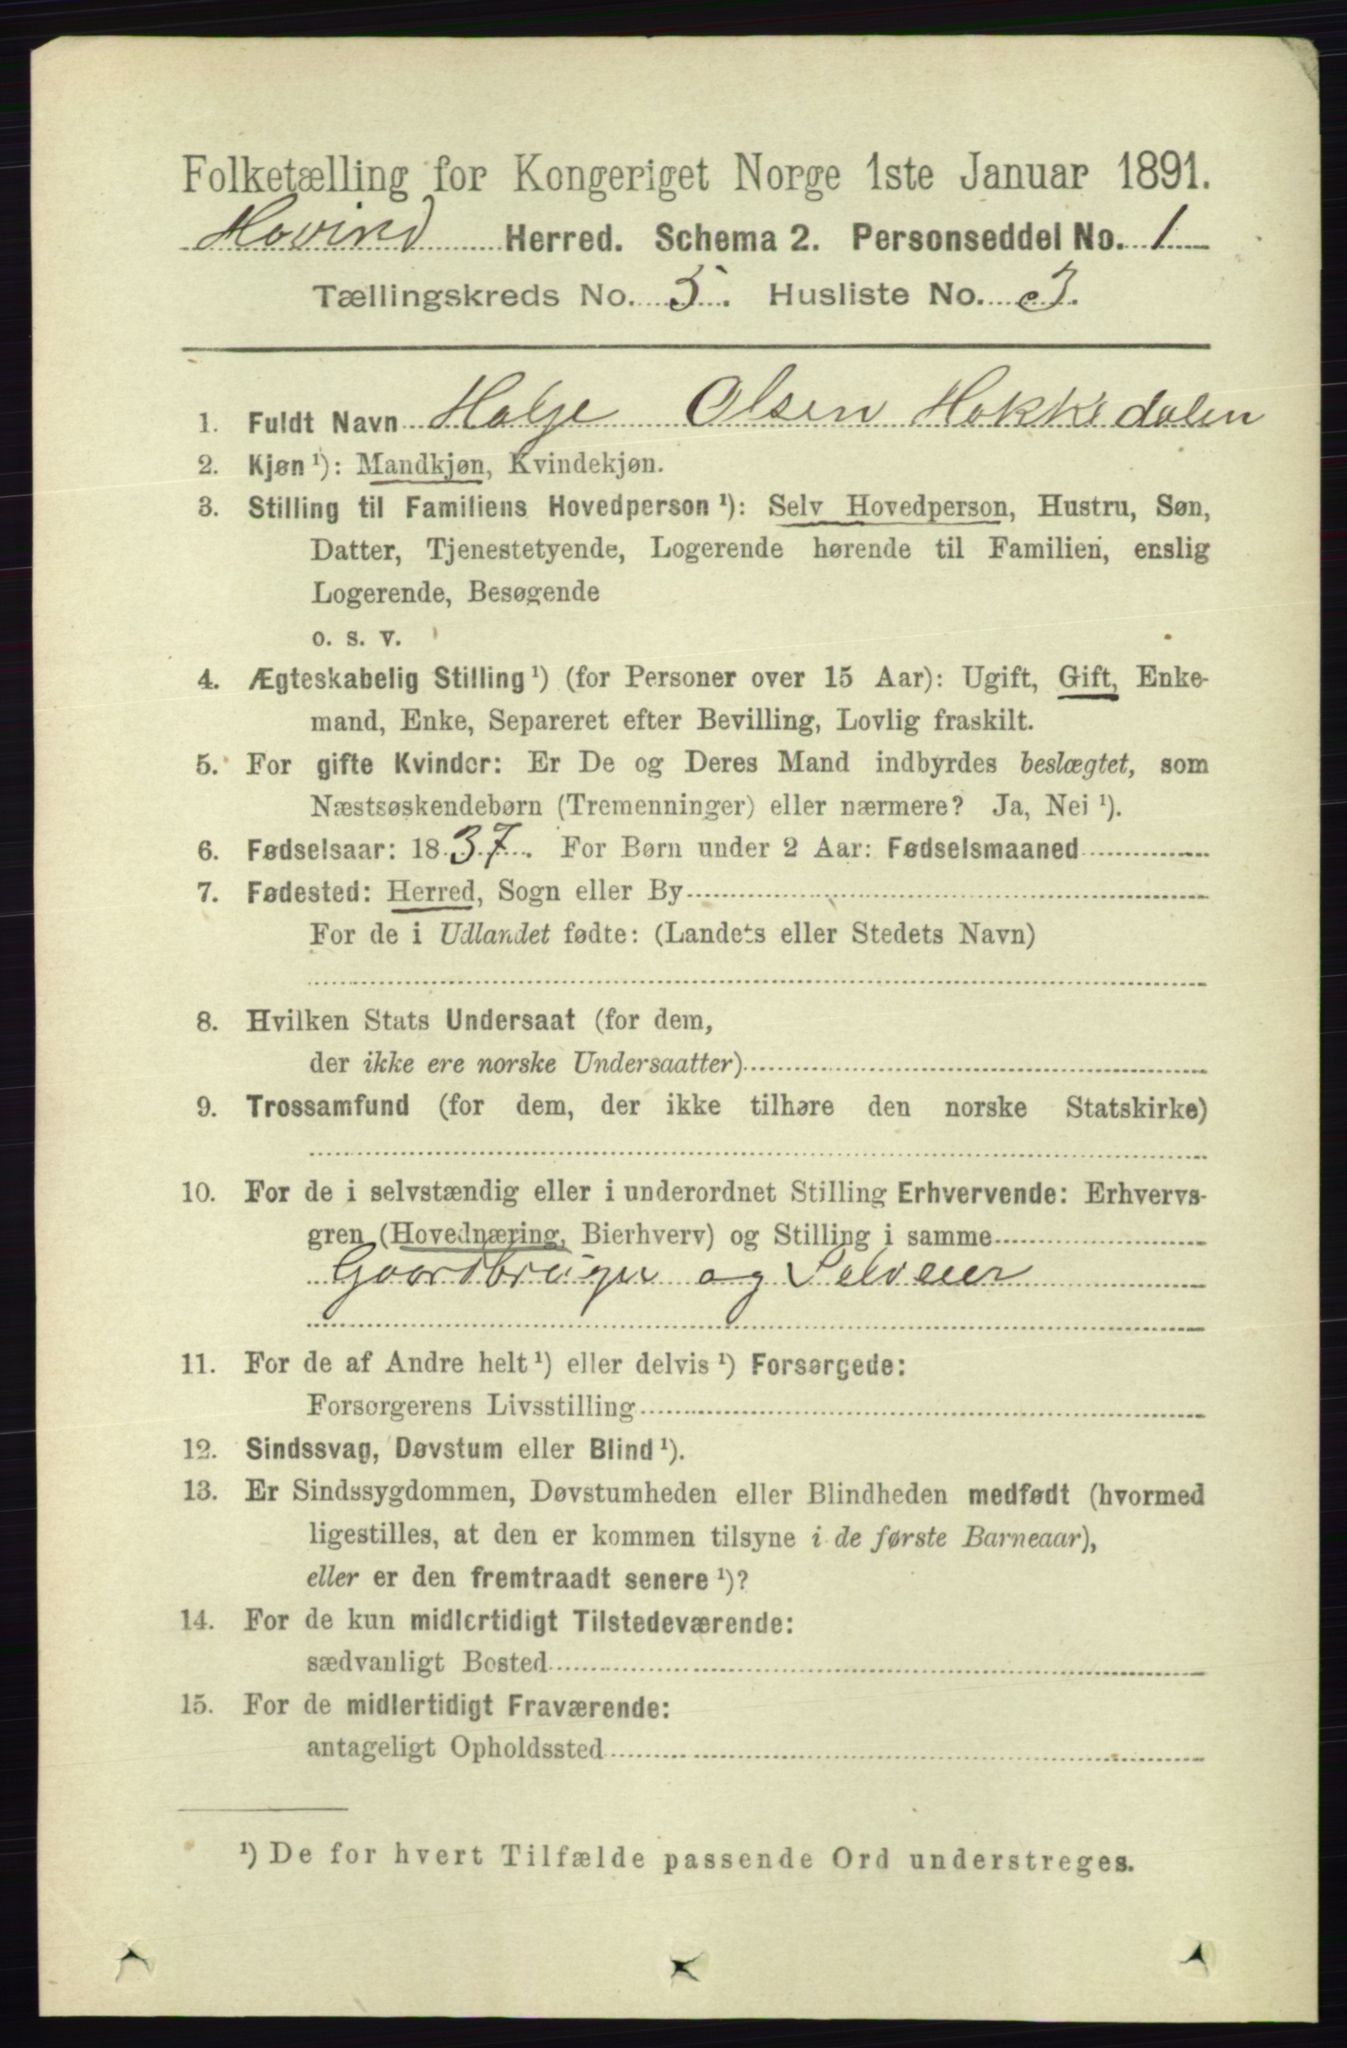 Folketælling for Kongeriget Norge 1ste Januar 1891.
Hovind Herred. Schema 2. Personseddel No. 1
Tællingskreds No. 5. Husliste No. 3.
1. Fuldt Navn Halje Olsen Hokksdalen
2. Kjøn ¹): Mandkjøn, Kvindekjøn.
3. Stilling til Familiens Hovedperson ¹): Selv Hovedperson, Hustru, Søn,
Datter, Tjenestetyende, Logerende hørende til Familien, enslig
Logerende, Besøgende
o. s. v.
4. Ægteskabelig Stilling ¹) (for Personer over 15 Aar): Ugift, Gift, Enke-
mand, Enke, Separeret efter Bevilling, Lovlig fraskilt.
5. For gifte Kvinder: Er De og Deres Mand indbyrdes beslægtet, som
Næstsøskendebørn (Tremenninger) eller nærmere? Ja, Nei ¹).
6. Fødselsaar: 1837. For Børn under 2 Aar: Fødselsmaaned
7. Fødested: Herred, Sogn eller By
For de i Udlandet fødte: (Landets eller Stedets Navn)
8. Hvilken Stats Undersaat (for dem,
der ikke ere norske Undersaatter)
9. Trossamfund (for dem, der ikke tilhøre den norske Statskirke)
10. For de i selvstændig eller i underordnet Stilling Erhvervende: Erhvervs-
gren (Hovednæring, Bierhverv) og Stilling i samme
Gaardbruger og Selveier
11. For de af Andre helt ¹) eller delvis ¹) Forsørgede:
Forsørgerens Livsstilling
12. Sindssvag, Døvstum eller Blind ¹).
13. Er Sindssygdommen, Døvstumheden eller Blindheden medfødt (hvormed
ligestilles, at den er kommen tilsyne i de første Barneaar),
eller er den fremtraadt senere ¹)?
14. For de kun midlertidigt Tilstedeværende:
sædvanligt Bosted
15. For de midlertidigt Fraværende:
antageligt Opholdssted
¹) De for hvert Tilfælde passende Ord understreges.